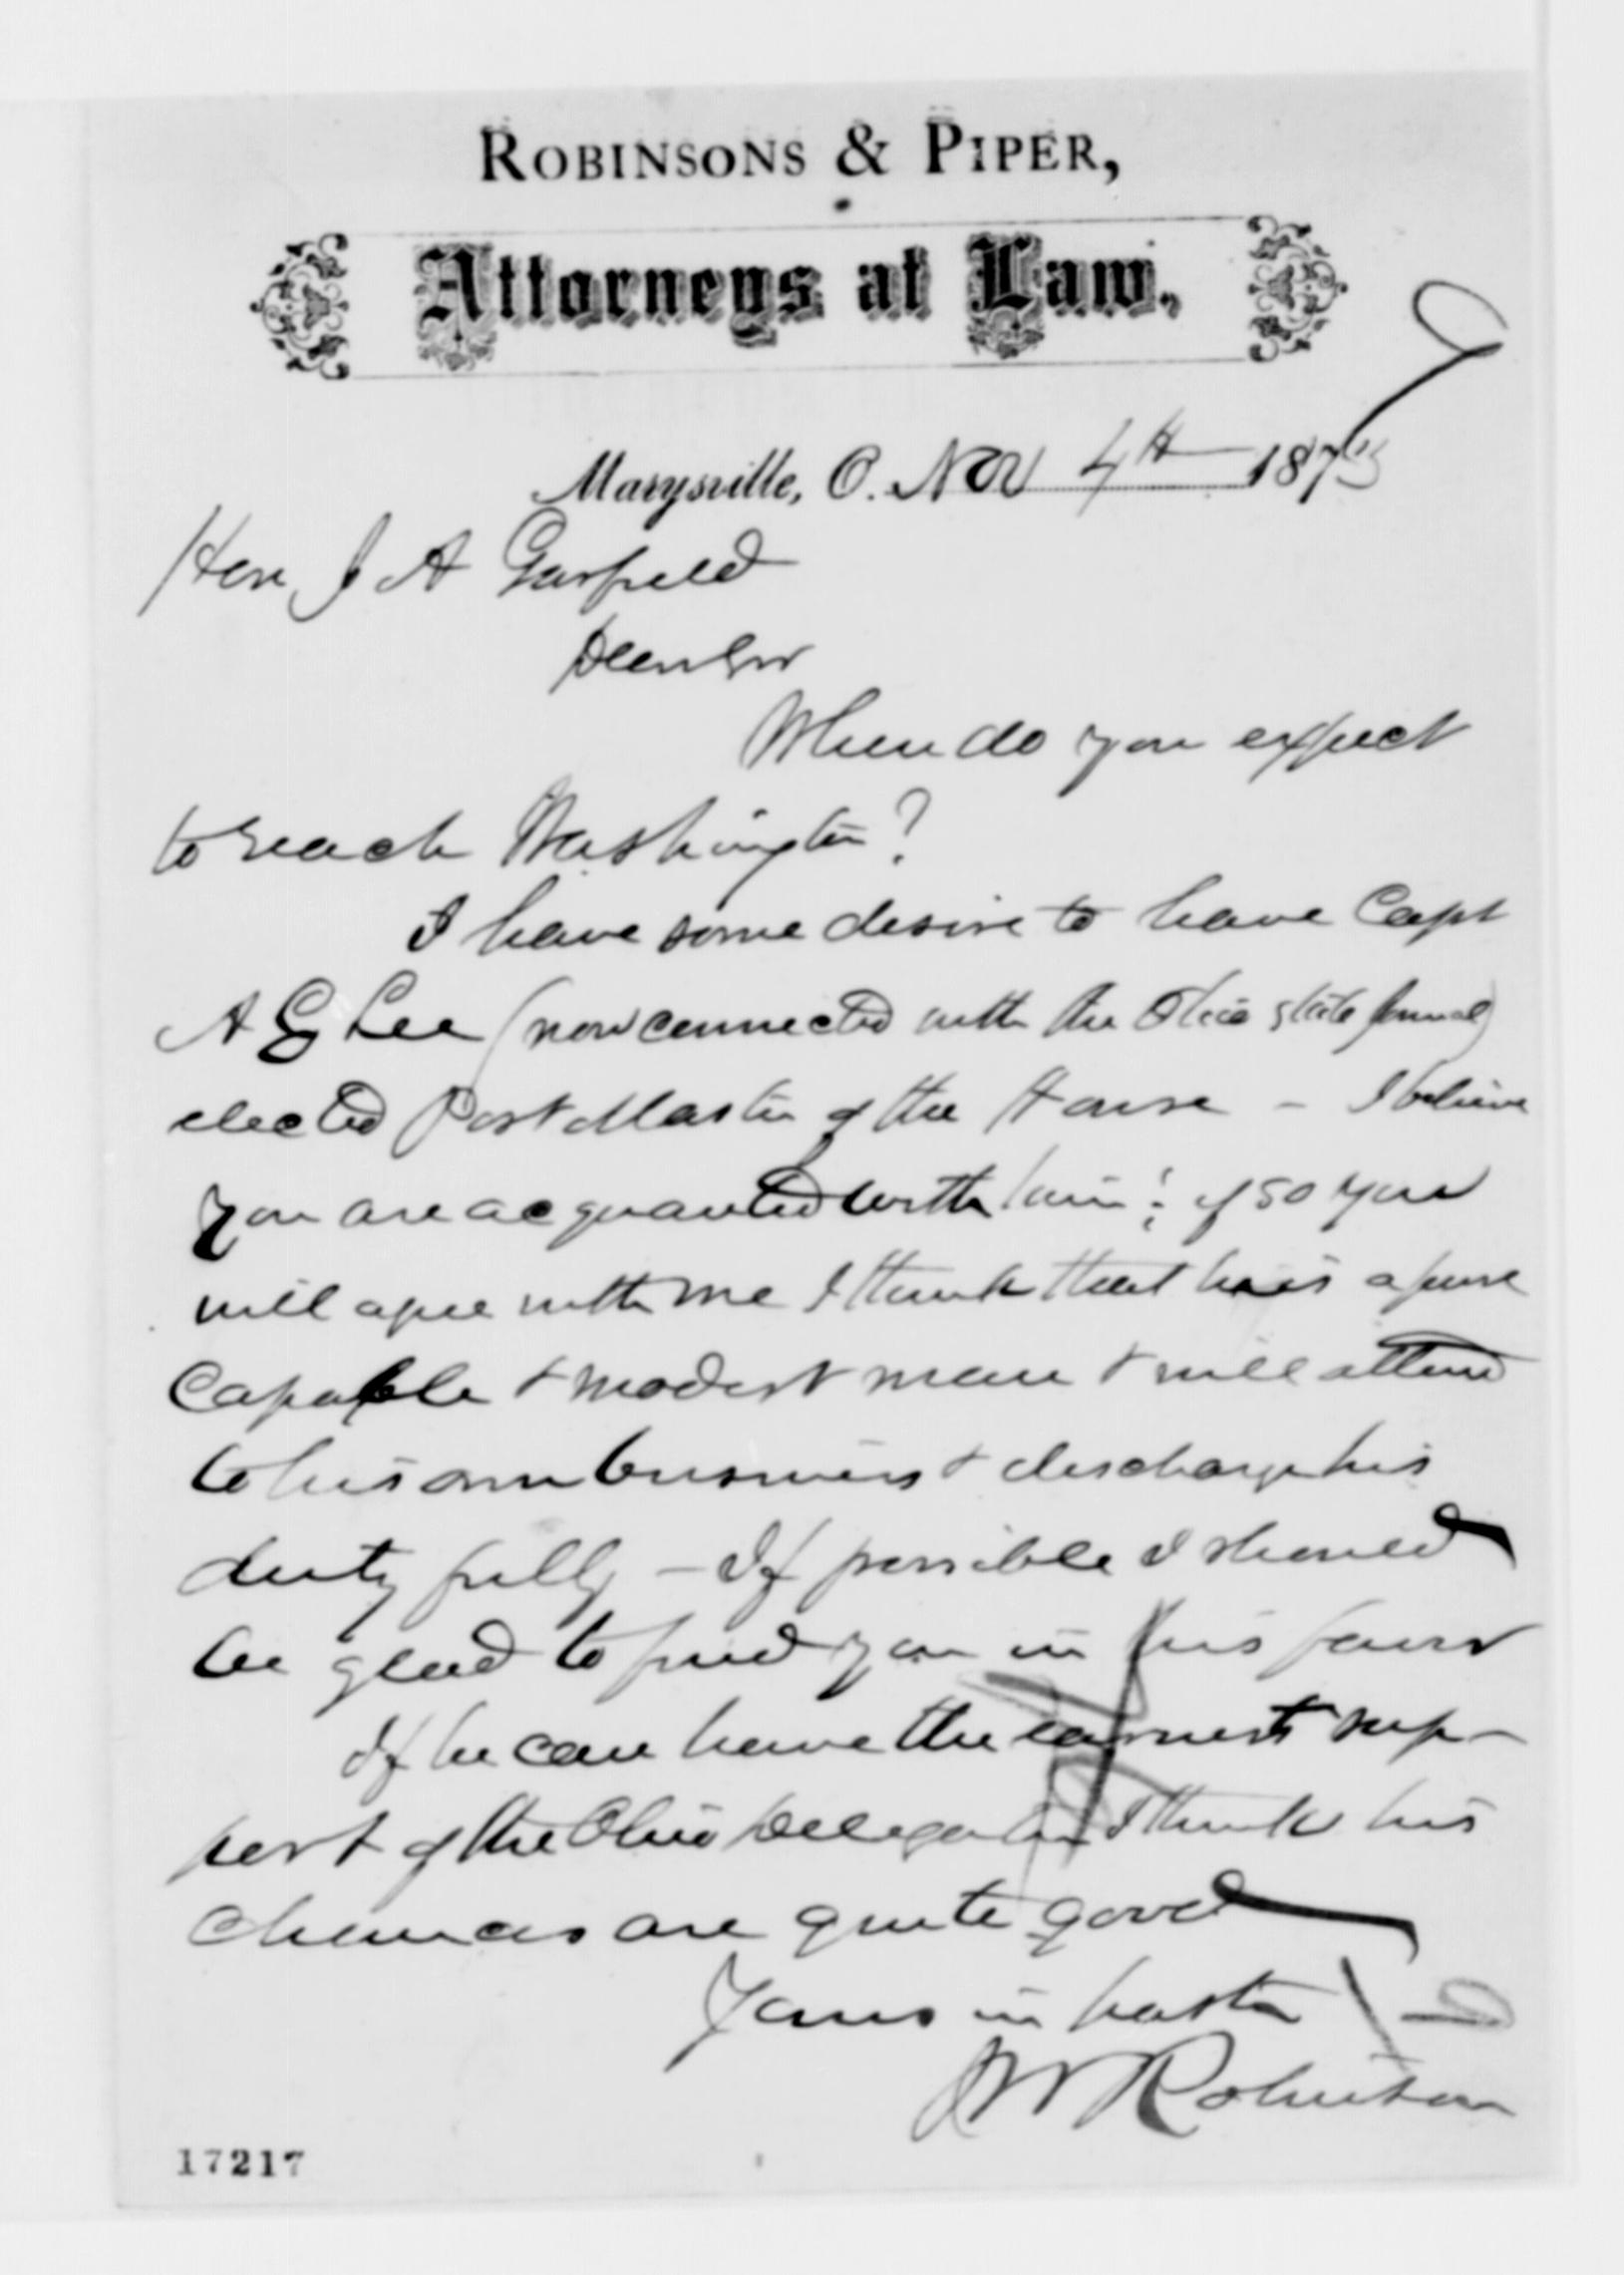 ROBINSONS & PIPER,
Attorneys at Law.
Marysville, O. Nov 4th 1873
Hon J A Garfield
Dear Sir
When do you expect
to reach Washington?
I have some desire to have Capt
A E Lee (now connected with the Ohio State Journal)
elected Post Master of the House – I believe
you are acquainted with him; if so you
will agree with me I think that he is a pure
capable & modest man & will attend
to his own business & discharge his
duty fully – If possible I should
be glad to find you in his favor
If he can have the earnest sup-
port of the Ohio Delegation I think his
chances are quite good
Yours in haste
J W Robinson
17217